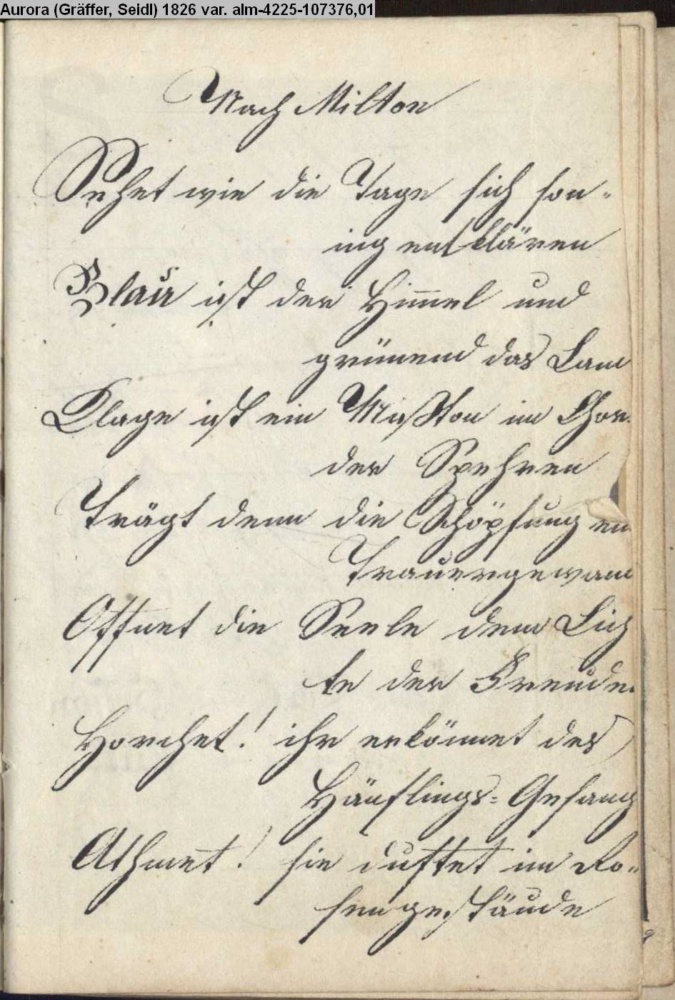 Aurora (Gräffer, Seidl) 1826 var. alm-4225-107376,01
Nach Milton
Sehet wie die Tage sich son-
nig entklären
Blau ist der Himmel und
grünend das Lan
Klage ist ein Mißton im Chor
der Sphären
Trägt denn die Schöpfung ein
Trauergewan
Öffnet die Seele dem Lich
te der Freude
Horchet! ihr ertönnet des
Hänflings-Gesang
Athmet! sie duftet im Ro-
sengestäude